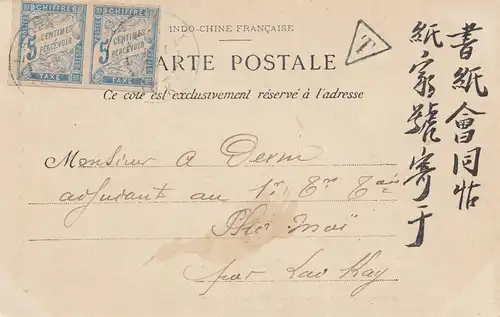 INDO-CHINE FRANÇAISE
CARTE POSTALE
Ce côté est exclusivement réservé à l'adresse
CHIFFRE
5
CENTIMES
À
PERCEVOIR
TAXE
CHIFFRE
5
CENTIMES
À
PERCEVOIR
TAXE
T
Monsieur A Derm
adjudant au 1er
Pho Moï
par Lao Kay
書紙會同帖
紙家號寄于